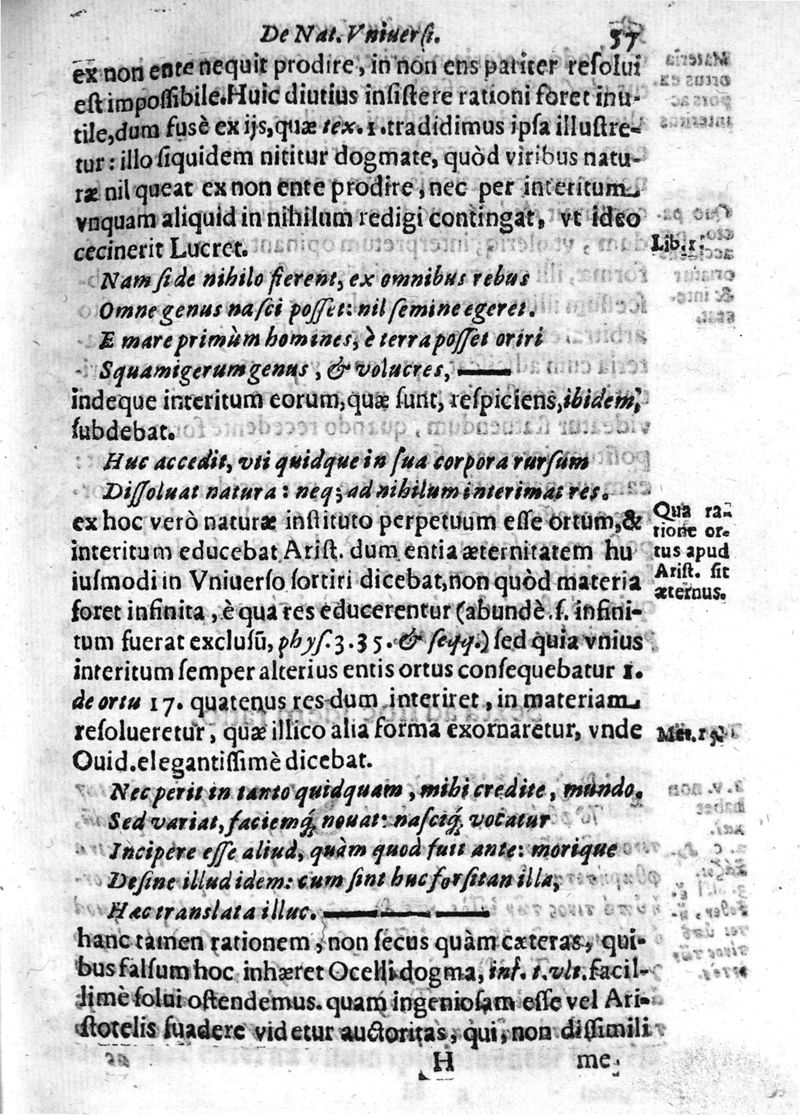 De Nat. Vniuersi. 57
ex non ente nequit prodire, in non ens pariter resolui
est impossibile. Huic diutius insistere rationi foret inu-
tile, dum fusè ex ijs, quæ tex. 1. tradidimus ipsa illustre-
tur: illo siquidem nititur dogmate, quòd viribus natu-
ræ nil queat ex non ente prodire, nec per interitum
vnquam aliquid in nihilum redigi contingat, vt ideo
cecinerit Lucret.
Lib. 1.
Nam si de nihilo fierent, ex omnibus rebus
Omne genus nasci posset: nil semine egeret.
E mare primùm homines, è terra posset oriri
Squamigerum genus, & volucres, ——
indeque interitum eorum, quæ sunt, respiciens, ibidem,
subdebat.
Huc accedit, vti quidque in sua corpora rursum
Dissoluat natura: neq; ad nihilum interimat res.
ex hoc verò naturæ instituto perpetuum esse ortum, &
interitum educebat Arist. dum entia æternitatem hu
iusmodi in Vniuerso sortiri dicebat, non quòd materia
foret infinita, è qua res educerentur (abundè .s. infini-
tum fuerat exclusū, phys. 3. 35. & seqq.) sed quia vnius
interitum semper alterius entis ortus consequebatur 1.
de ortu 17. quatenus res dum interiret, in materiam
resolueretur, quæ illico alia forma exornaretur, vnde
Ouid. elegantissimè dicebat.
Qua ra-
tione or-
tus apud
Arist. sit
æternus.
Met. 15.
Nec perit in tanto quidquam, mihi credite, mundo,
Sed variat, faciemq; nouat: nasciq; vocatur
Incipere esse aliud, quàm quod fuit ante: morique
Desine illud idem: cum sint huc forsitan illa,
Hæc translata illuc. ——
hanc tamen rationem, non secus quàm cæteras, qui-
bus falsum hoc inhæret Ocelli dogma, inf. t. vlt. facil-
limè solui ostendemus. quam ingeniosam esse vel Ari-
stotelis suadere videtur auctoritas, qui, non dissimili
H me,